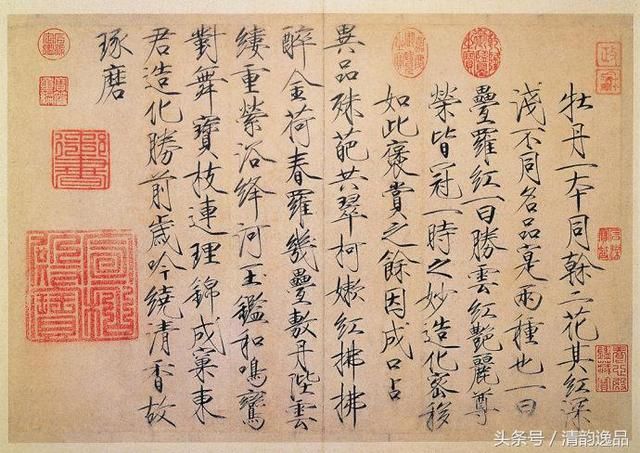 牡丹一本同幹二花其紅深
淺不同名品寔兩種也一曰
疊羅紅一曰勝雲紅艷麗尊
榮皆冠一時之妙造化密移
如此褒賞之餘因成口占
異品殊葩共翠柯嫩紅拂拂
醉金荷春羅幾疊敷丹陛雲
縷重縈浴絳河玉鑑和鳴鸞
對舞寶枝連理錦成窠東
君造化勝前歲吟繞清香故
琢磨
头条号/清韵逸品